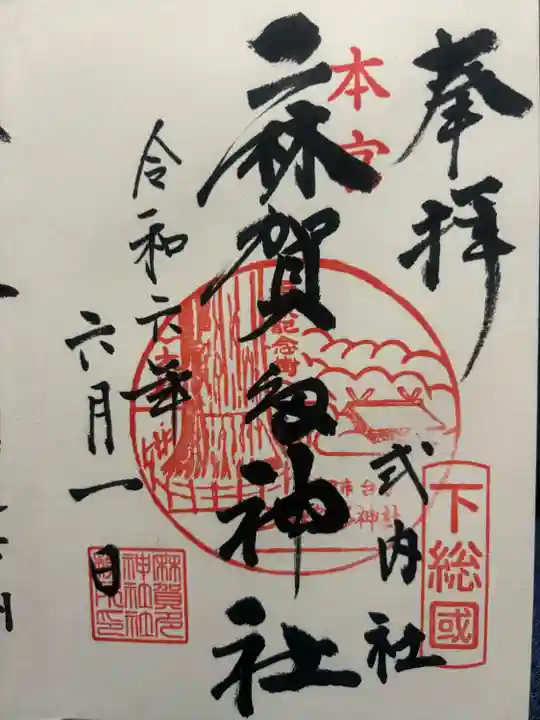 奉拝
式内社
下総國
本宮
麻賀多神社
記念樹
市台
神社
令和六年
六月一日
麻賀多
神社社